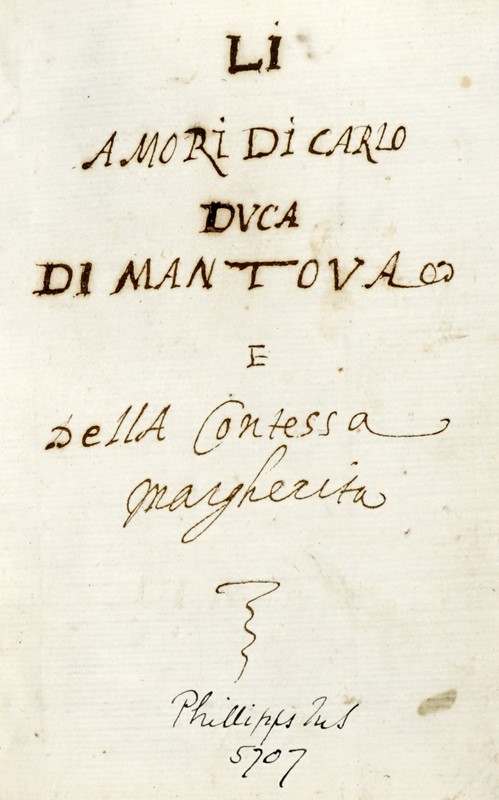 LI
AMORI DI CARLO
DVCA
DI MANTOVA
E
Della Contessa
margherita
Phillipps MS
5707